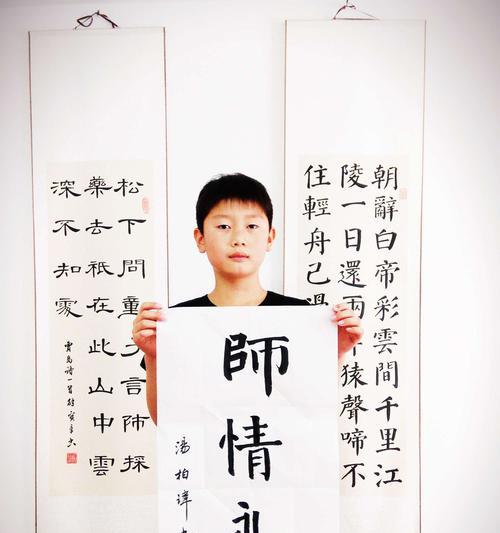 朝辭白帝彩雲間千里江
陵一日還兩岸猿聲啼不
住輕舟已過
師情
湯柏
松下問童子言師採
藥去衹在此山中雲
深不知處
賈島诗一首